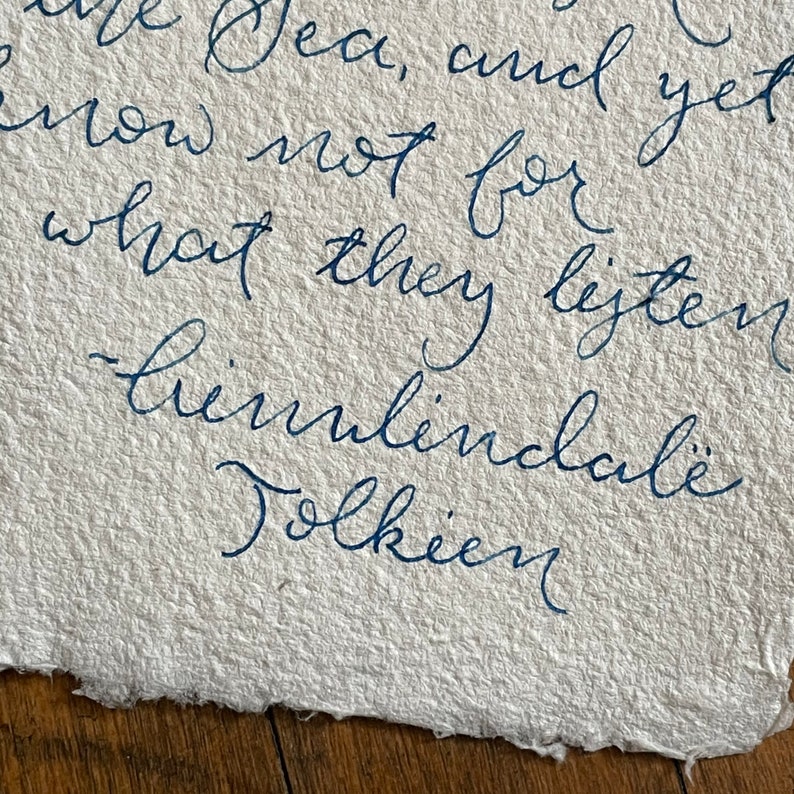 the Sea, and yet
know not for
what they listen
-Ainulindalë
Tolkien